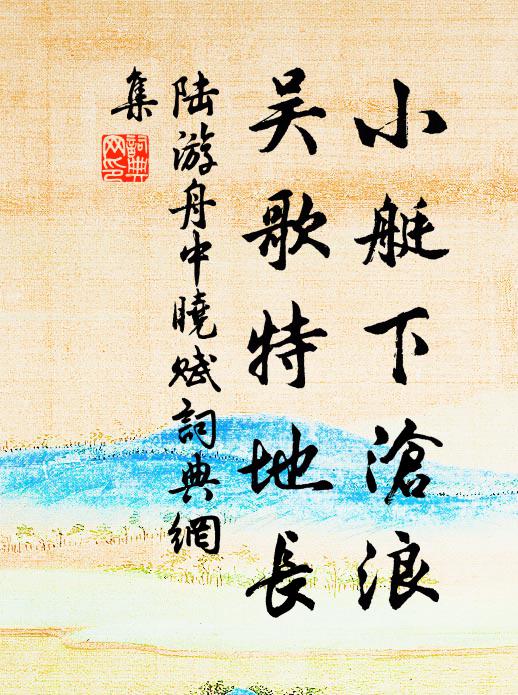 小艇下滄浪
吴歌特地長
陆游舟中曉赋詞典網
集
詞典
网印